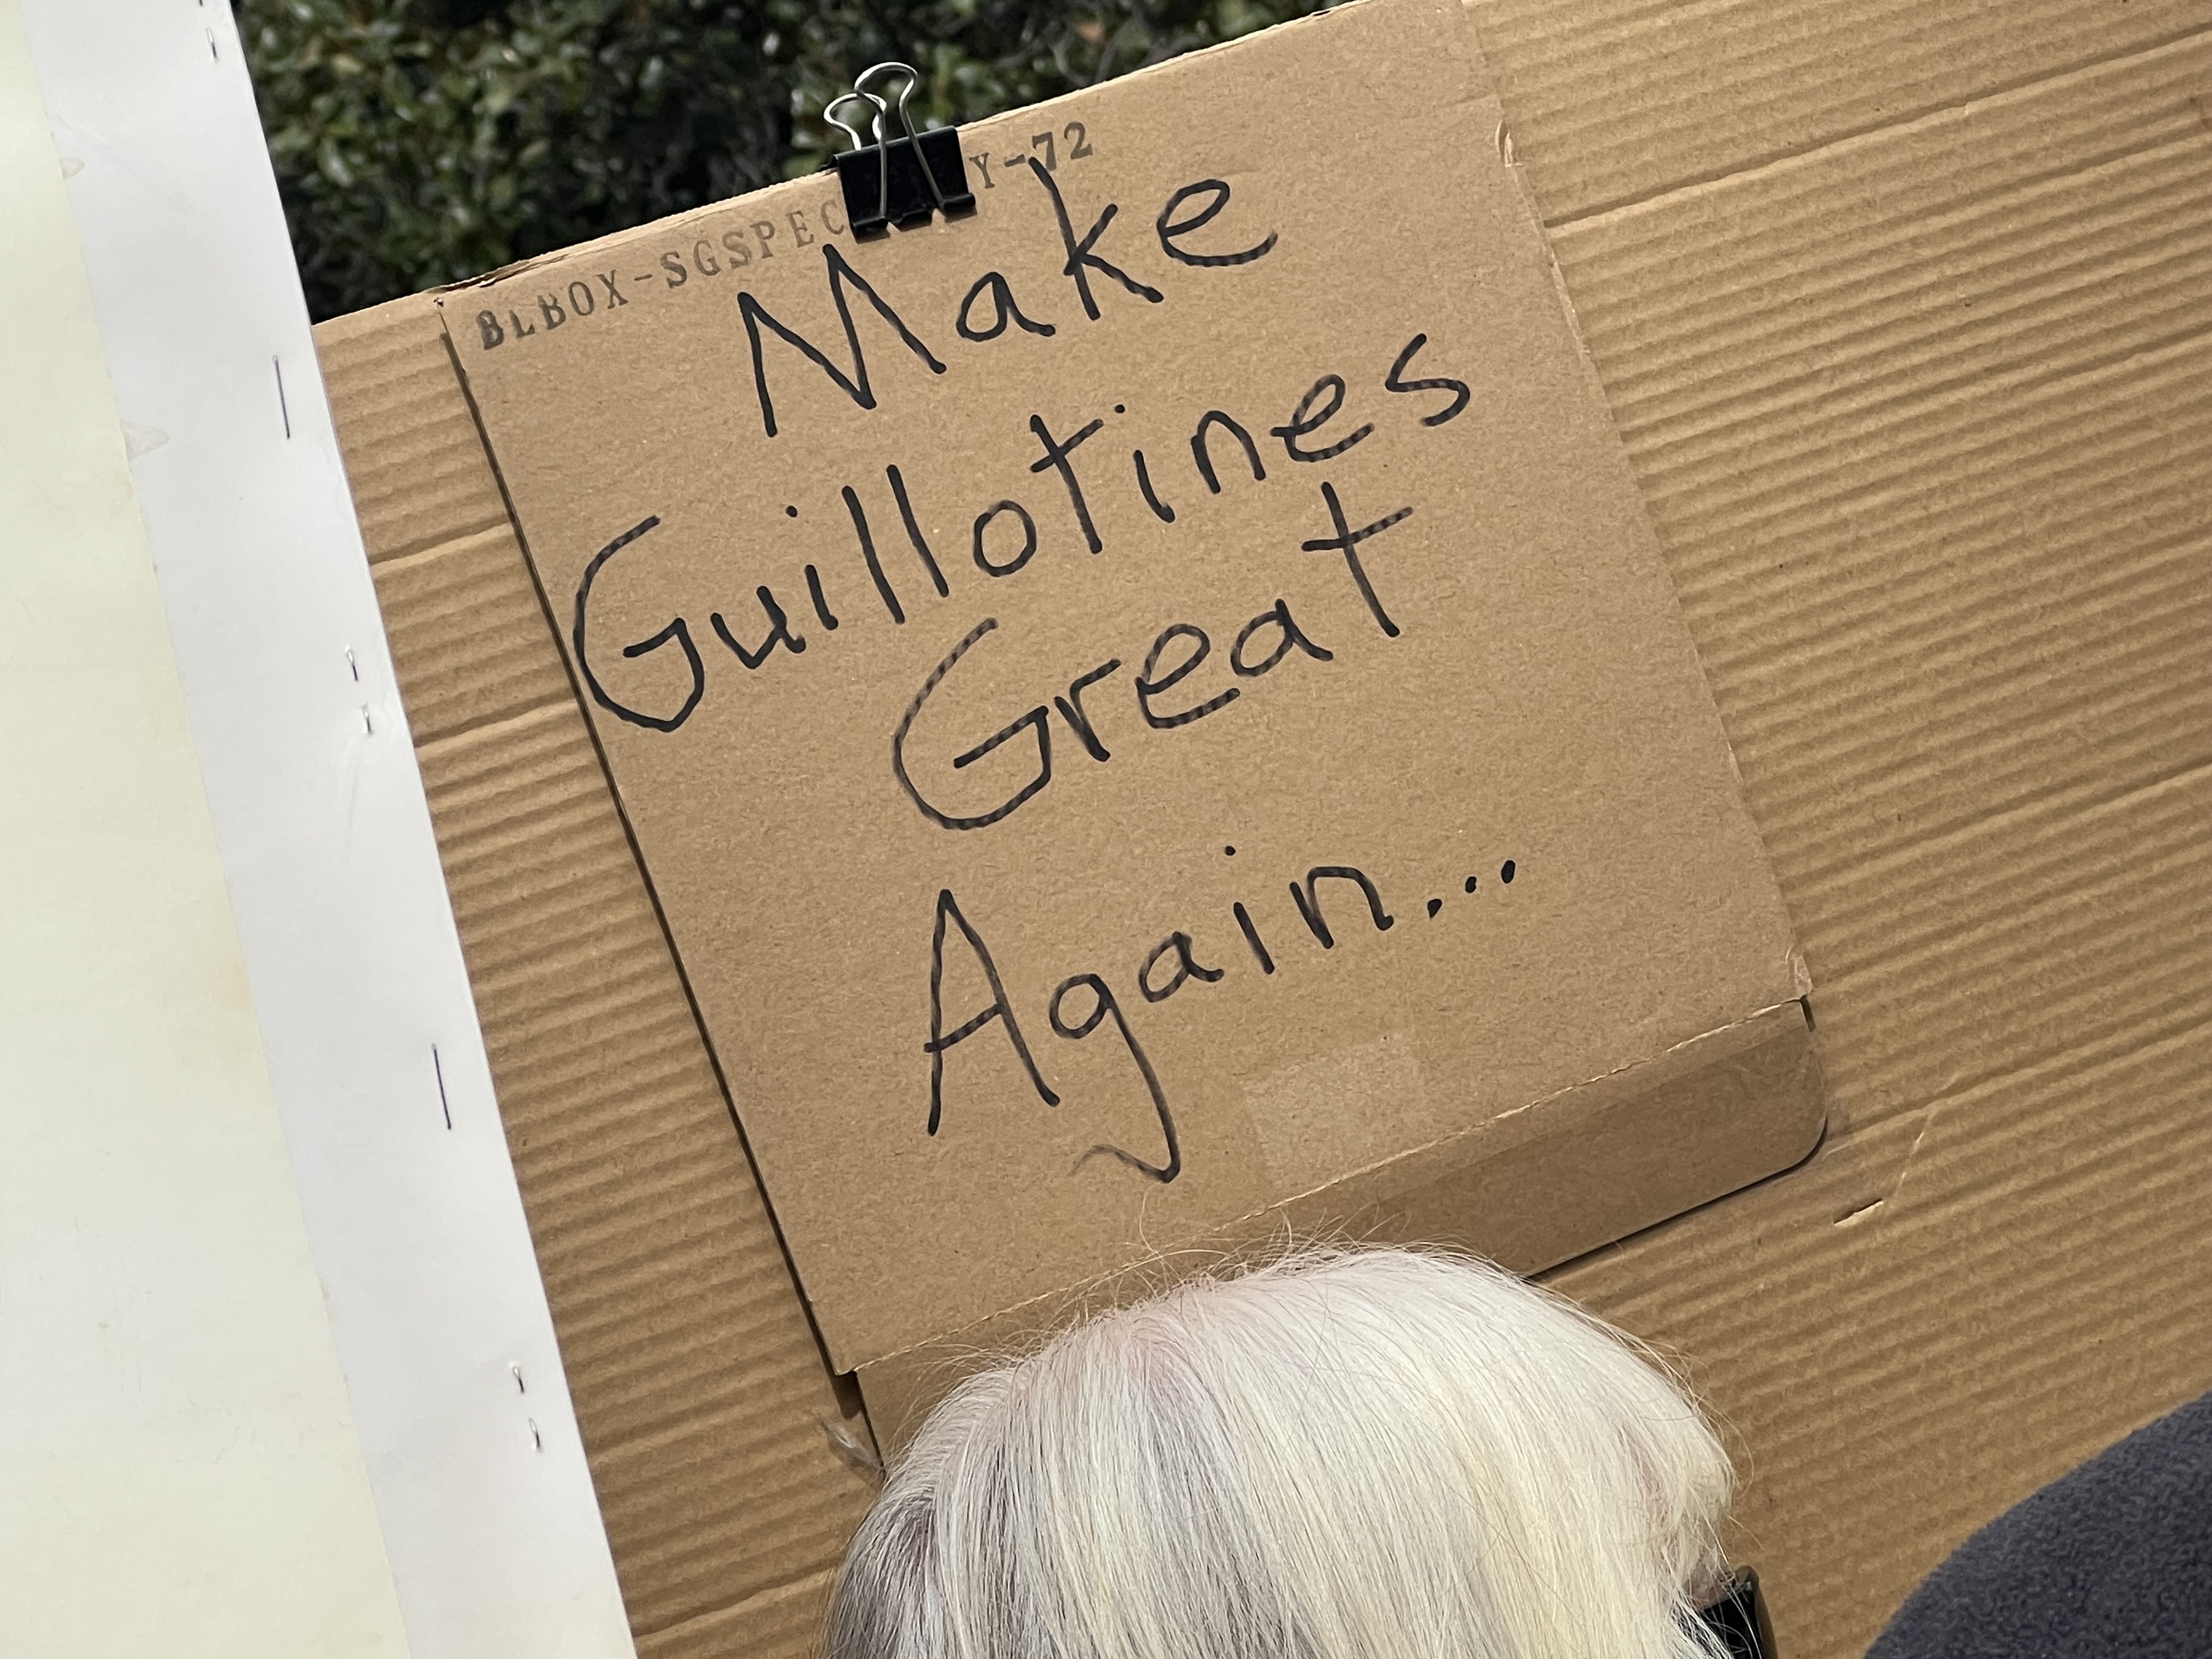 BLBOX-SGSPEC Y-72
Make
Guillotines
Great
Again...